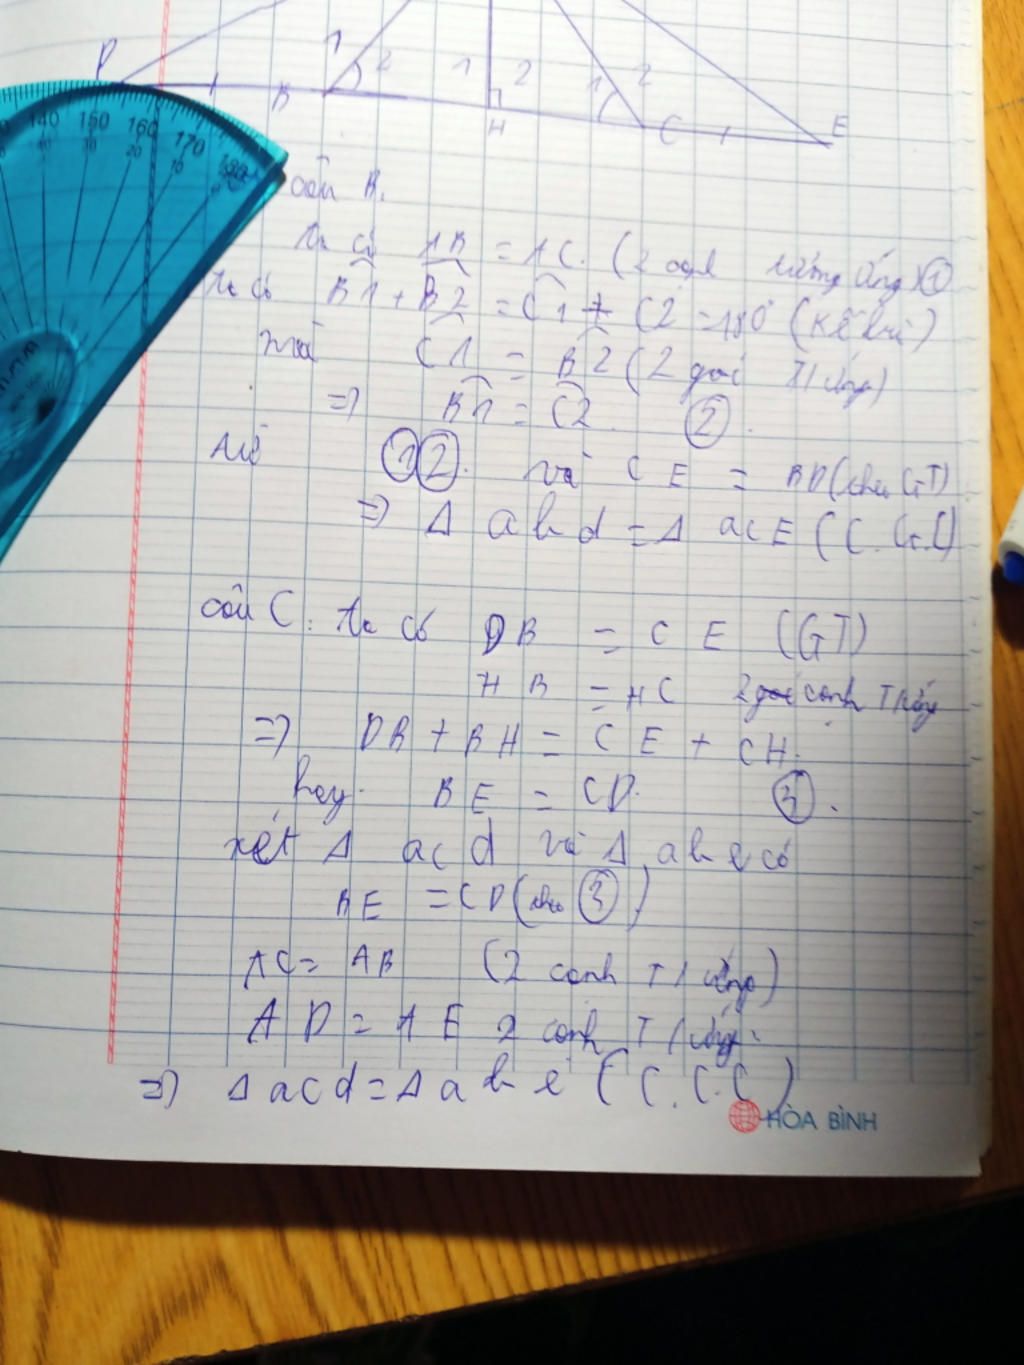 D 1 2 1 2 1 2
B H C E
140 150 160 170 180
40 30 20 10
câu B.
ta có AB = AC. (2 cạnh tương ứng) ①
ta có B1 + B2 = C1 + C2 = 180° (kề bù)
mà C1 = B2 (2 góc T/ứng)
=> B1 = C2. ②.
từ ① ②. và CE = BD (theo GT)
=> Δ abd = Δ acE (C.G.C)
câu C. ta có DB = CE (GT)
HB = HC 2 cạnh T/ứng
=> DB + BH = CE + CH.
hay. BE = CD. ③.
xét Δ acd và Δ abe có
BE = CD (theo ③)
AC = AB (2 cạnh T/ứng)
AD = AE 2 cạnh T/ứng.
=> Δ acd = Δ abe (C.C.C)
HÒA BÌNH